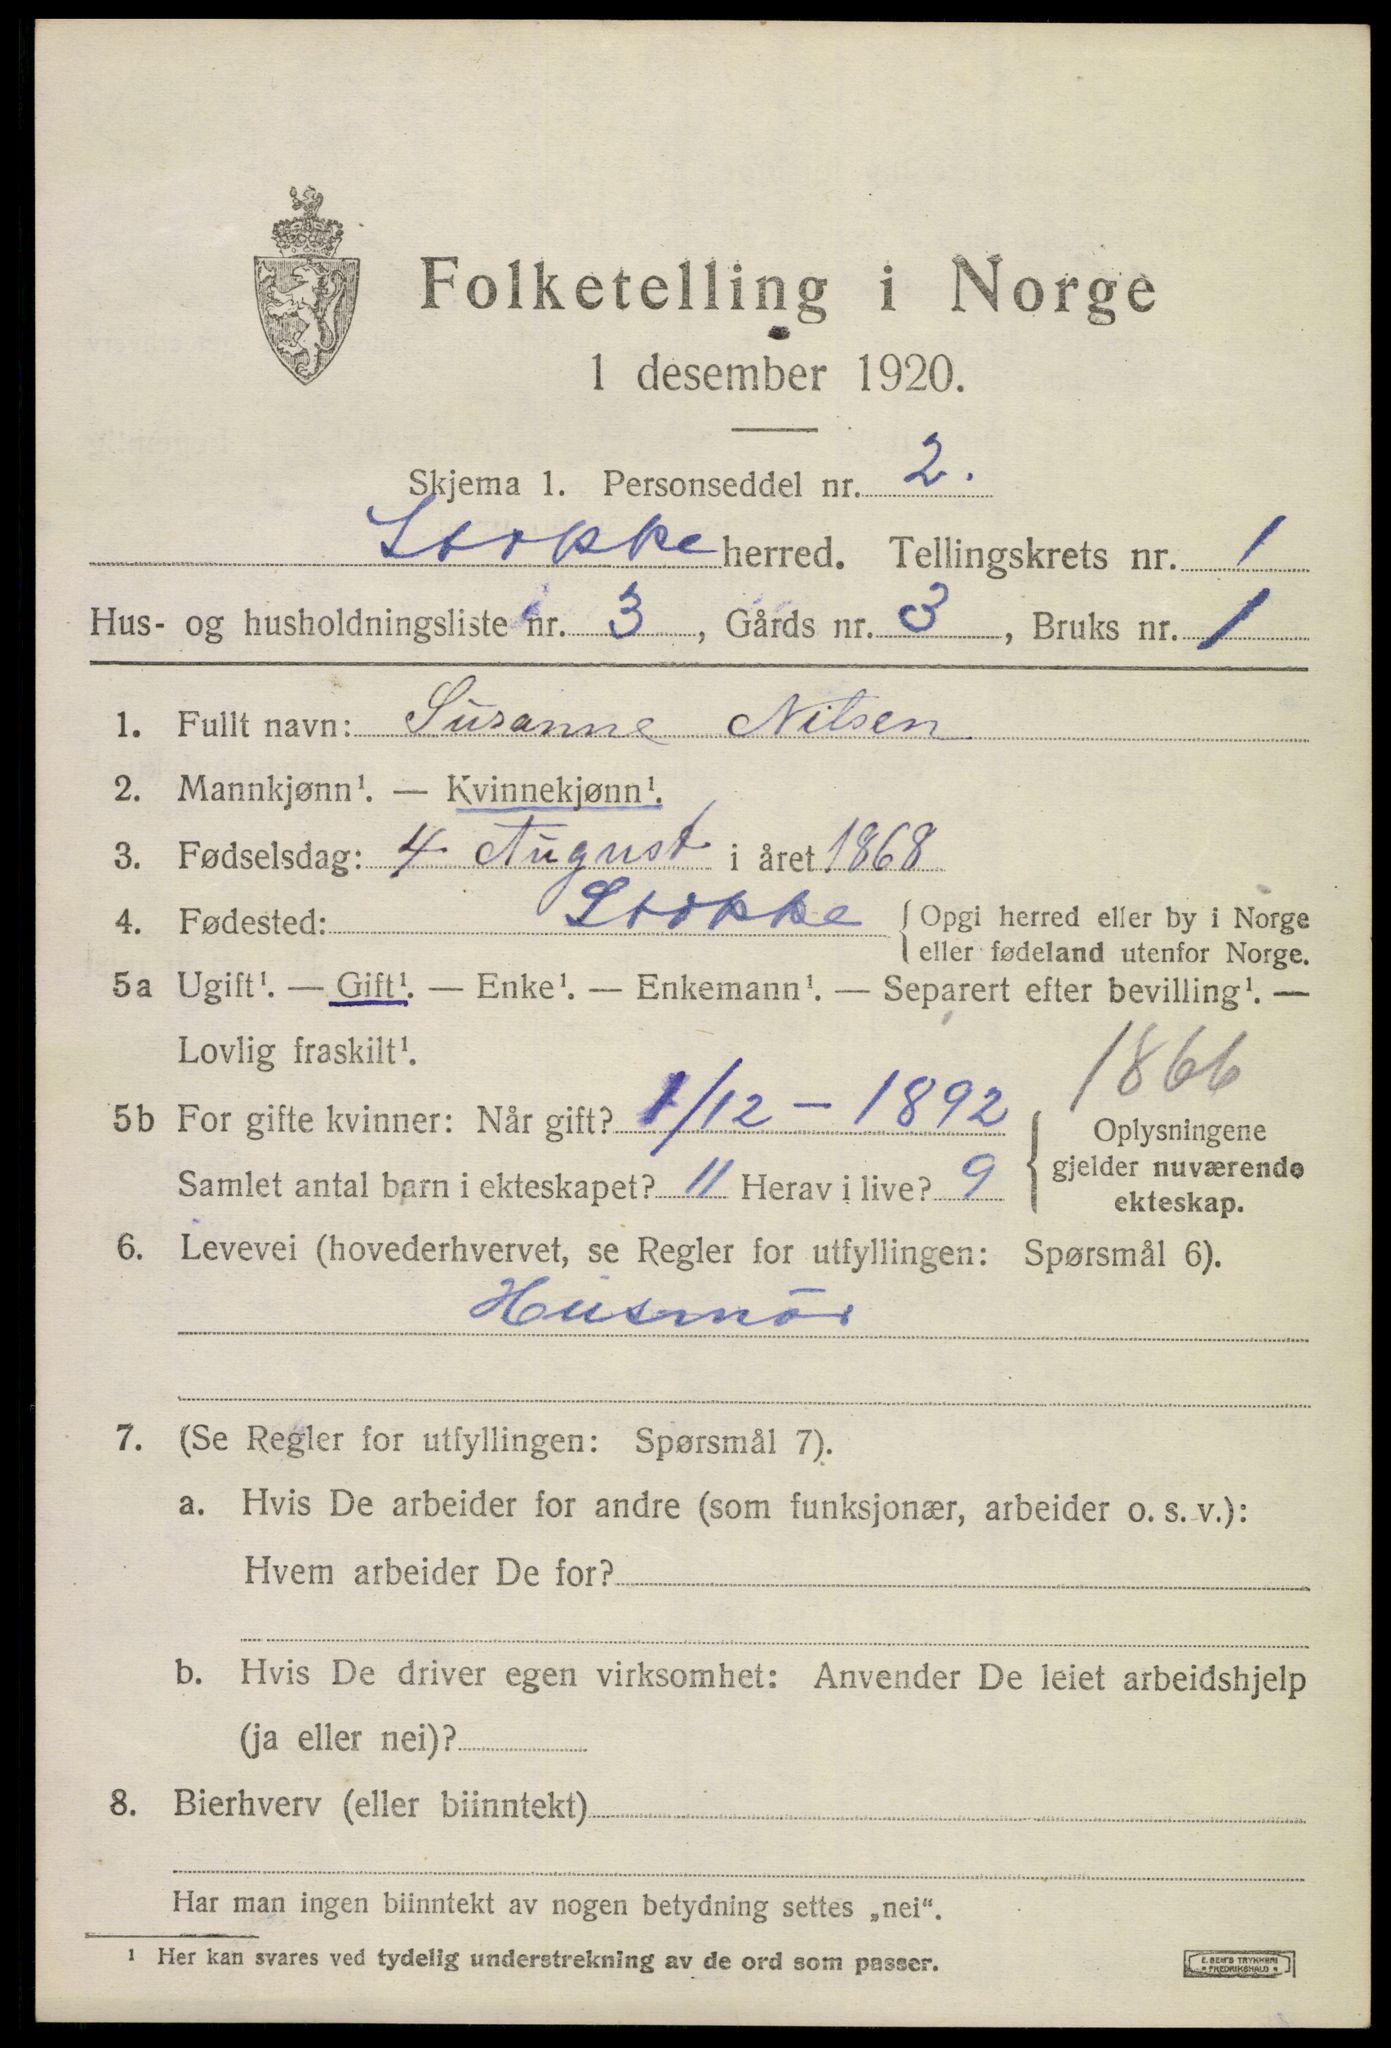 Folketelling i Norge
1 desember 1920.
Skjema 1. Personseddel nr. 2.
Stokke herred. Tellingskrets nr. 1
Hus- og husholdningsliste nr. 3, Gårds nr. 3, Bruks nr. 1
1. Fullt navn: Susanne Nilsen
2. Mannkjønn¹. — Kvinnekjønn¹.
3. Fødselsdag: 4 August i året 1868
4. Fødested: Stokke { Opgi herred eller by i Norge
eller fødeland utenfor Norge.
5a Ugift¹. — Gift¹. — Enke¹. — Enkemann¹. — Separert efter bevilling¹. —
Lovlig fraskilt¹.
1866
5b For gifte kvinner: Når gift? 1/12 – 1892
Samlet antal barn i ekteskapet? 11 Herav i live? 9
{ Oplysningene
gjelder nuværende
ekteskap.
6. Levevei (hovederhvervet, se Regler for utfyllingen: Spørsmål 6).
Husmor
7. (Se Regler for utfyllingen: Spørsmål 7).
a. Hvis De arbeider for andre (som funksjonær, arbeider o. s. v.):
Hvem arbeider De for?
b. Hvis De driver egen virksomhet: Anvender De leiet arbeidshjelp
(ja eller nei)?
8. Bierhverv (eller biinntekt)
Har man ingen biinntekt av nogen betydning settes „nei“.
¹ Her kan svares ved tydelig understrekning av de ord som passer.
E. SEM'S TRYKKERI
FREDRIKSHALD